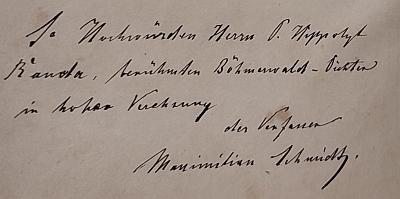 Sr Hochwürden Herrn P. Hippolyt
Randa, berühmten Böhmerwald-Dichter
in hoher Verehrung
der Verfasser
Maximilian Schmidt.